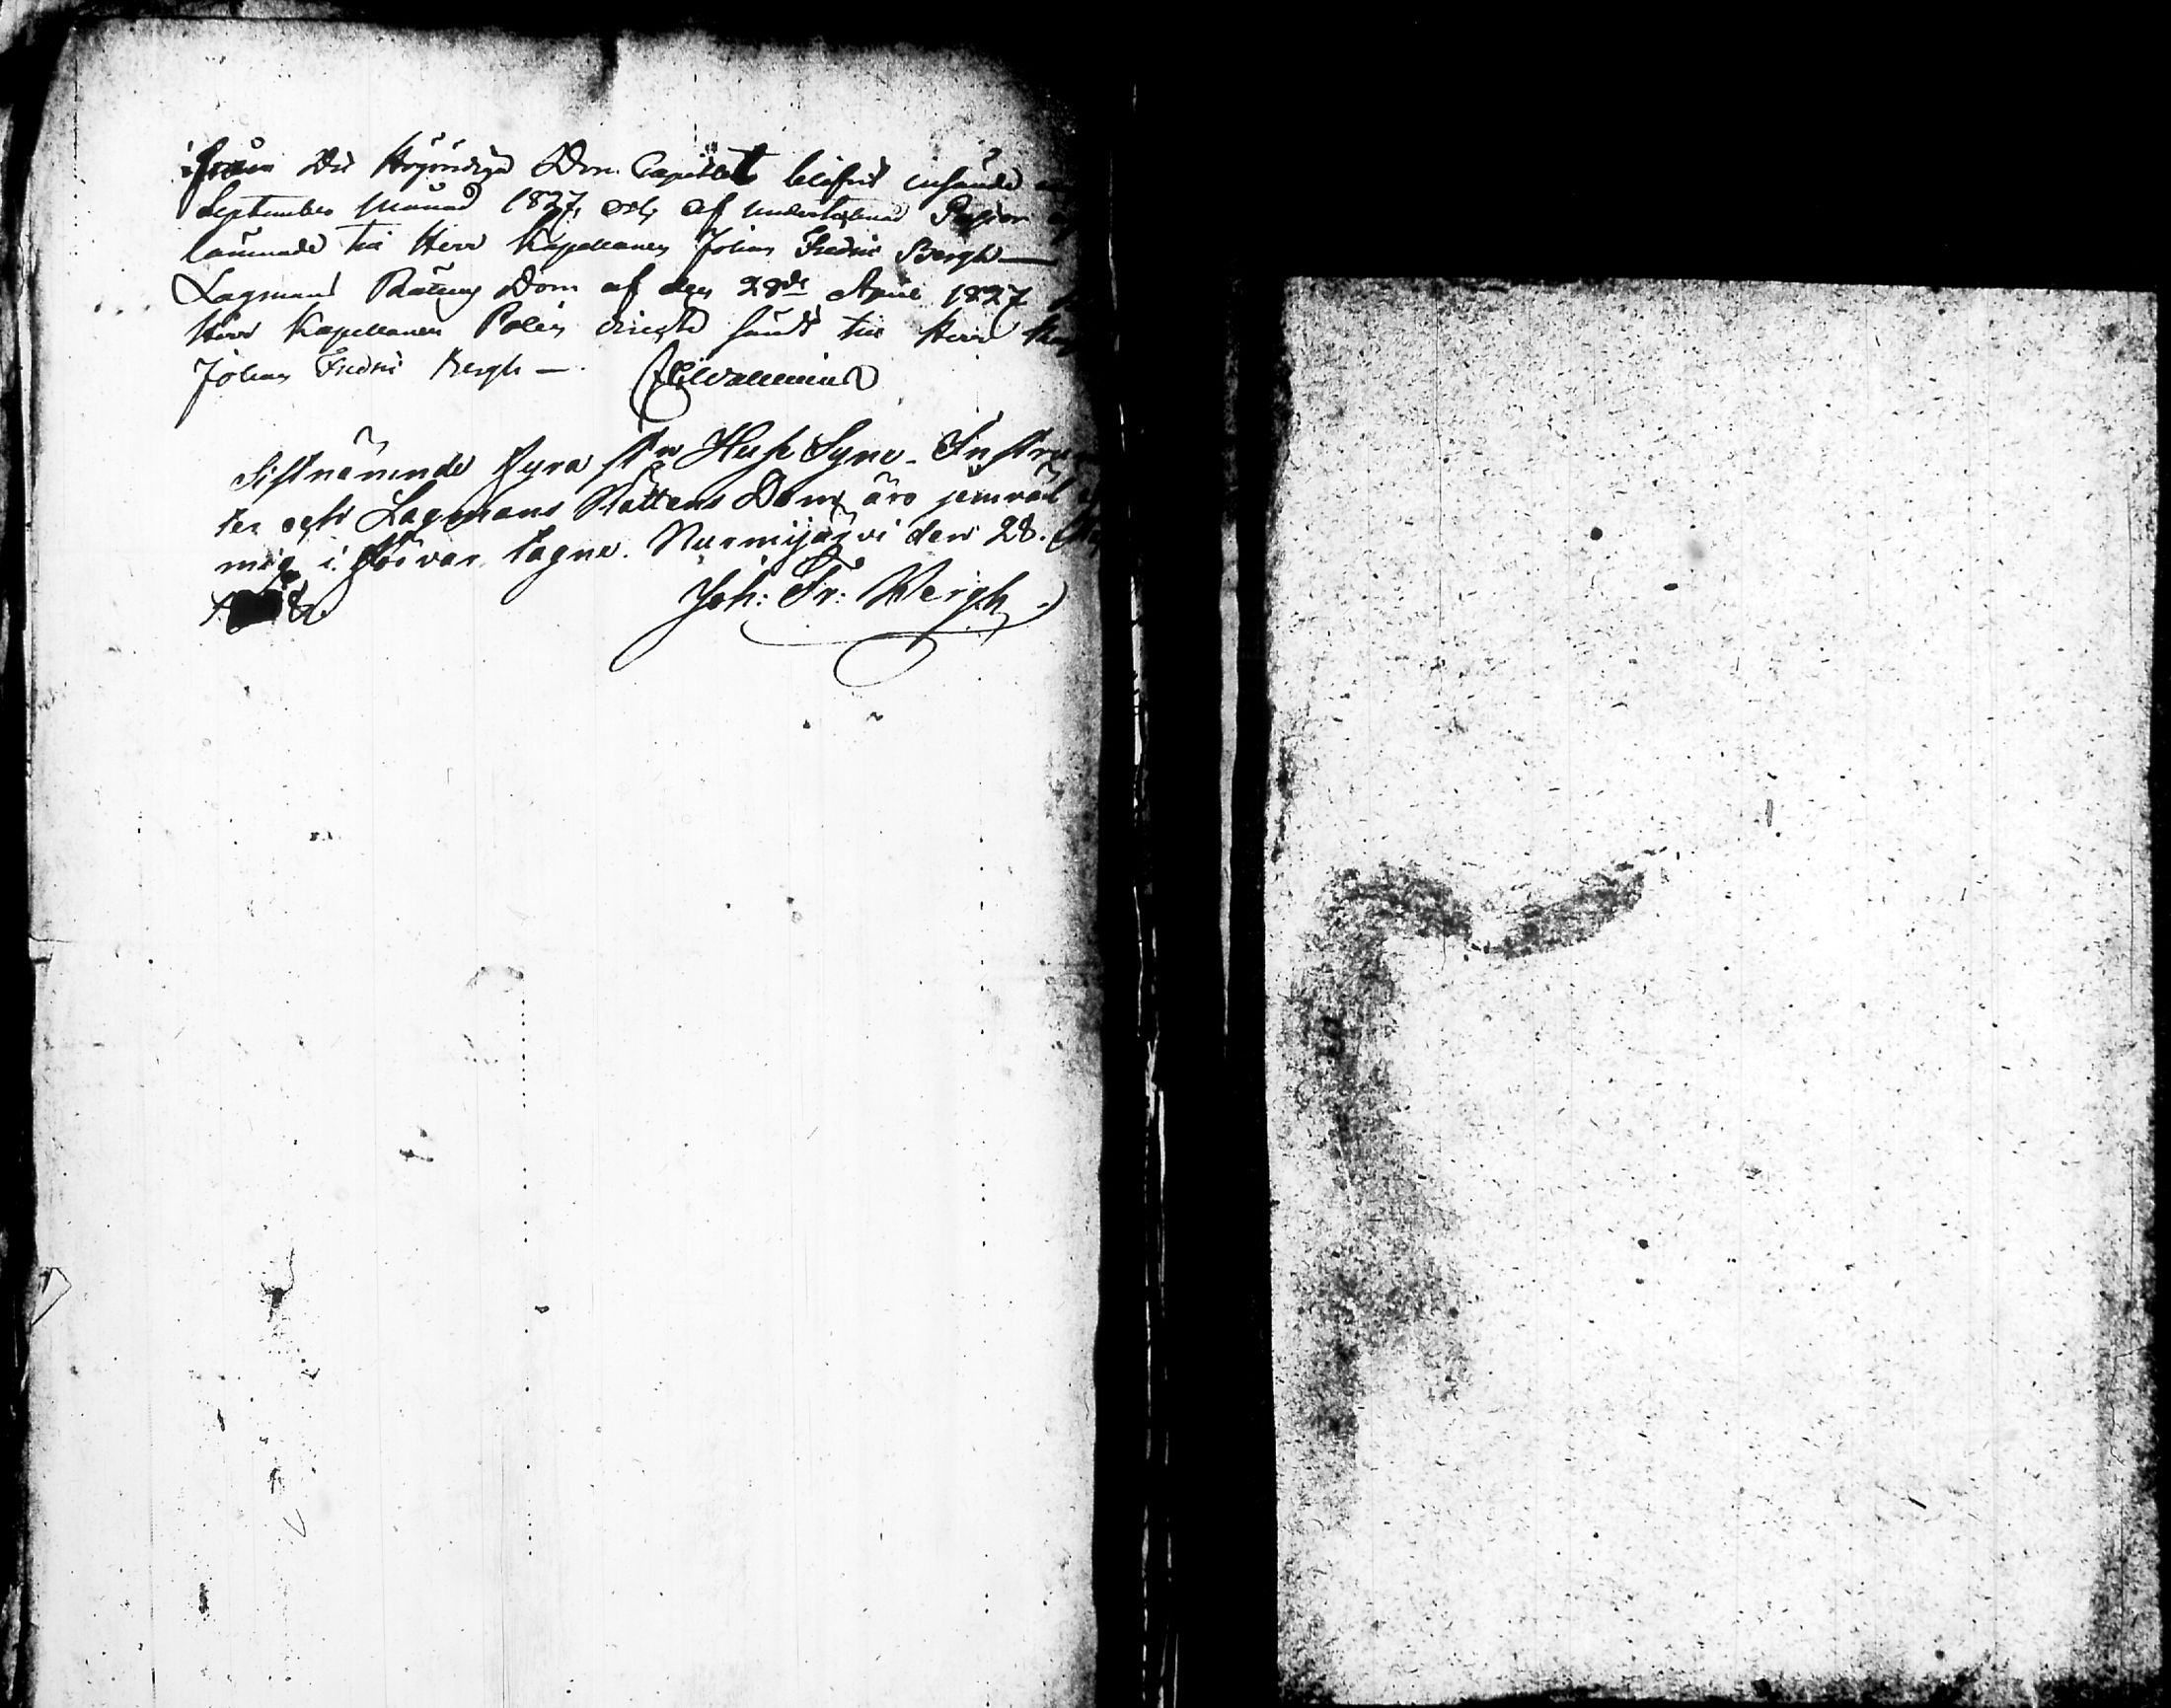 ifrån Det Högvördiga Dom Capitlet blifvit insände
September Månad 1827, och af undertecknad Pastor
lämnade till Herr Kapellanen Johan Fredric Bergh —
Lagmans Rättens Dom af den 28de April 1827
Herr Kapellanen Polén sändt till Herr
Johan Fredric Bergh —.
Sistnämnde fyra st:n Huse Syne-Instrumen
ter och Lagmans Rättens Dom, äro jemväl
mig i förvar tagne. Nurmijärvi den 28.
Joh: Fr: Bergh.